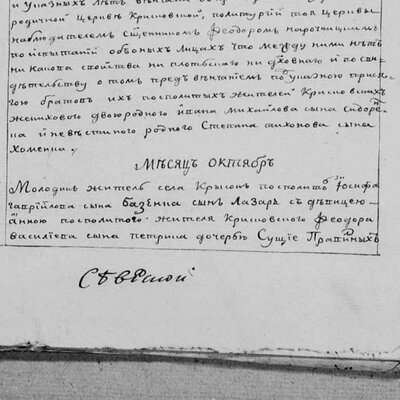 и указныхъ лѣтъ вѣнчаны
родичной церквѣ крисовской, политургіи той церквы
наблюдателемъ священникомъ Феодоромъ нарочицкимъ
по испытаніи обоныхъ лицахъ что между ними нѣтъ
ни какова свойства ни плотскаго ни духовнаго и по сви
дѣтельству о томъ предъ вѣнчаніемъ по указною прися
гою братовъ ихъ посполитыхъ жителей крисовскихъ
жениховаго двоюродного Ивана Михайлова сына Сидоре
на и невѣстиного родного Степана тихонова сына
Хоменка
Мѣсяцъ октябрь
Молодикъ житель села Крысокъ посполитъ Іосифа
гаврійлова сына базенка сынъ Лазарь съ дѣвицею
анною посполитого жителя Крисовского Феодора
василіева сына петрика дочерью Сущіе Правныхъ
Сѣвской